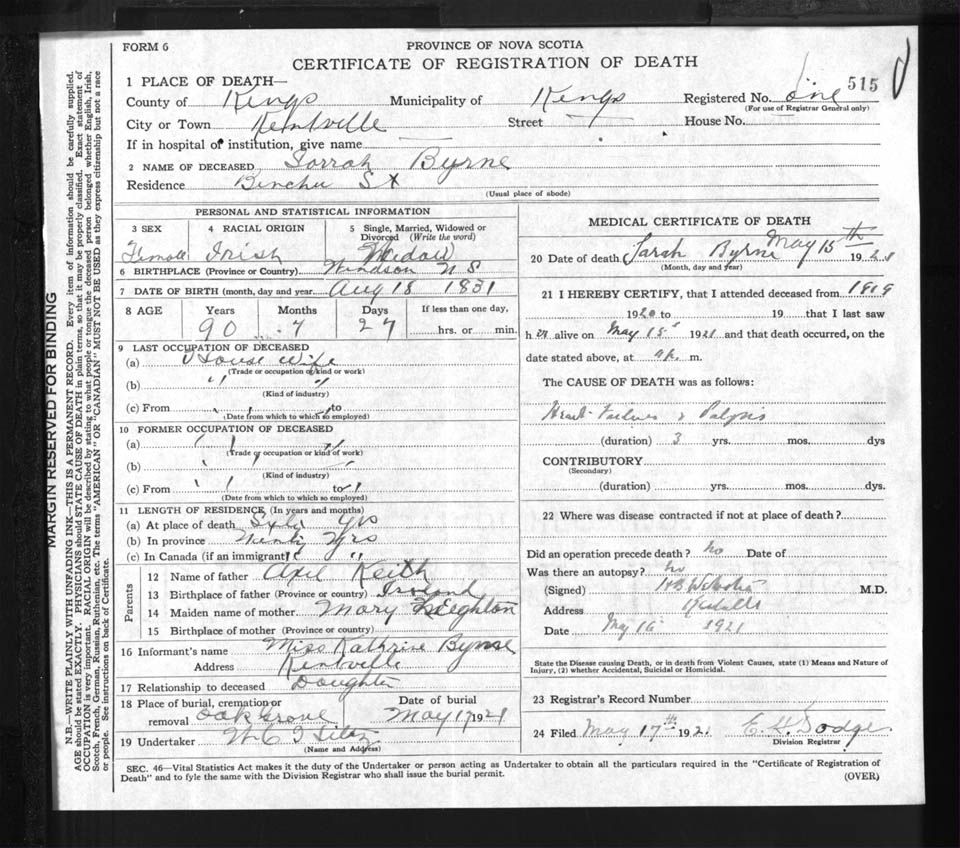 FORM 6
PROVINCE OF NOVA SCOTIA
CERTIFICATE OF REGISTRATION OF DEATH
515
1 PLACE OF DEATH—
County of Kings Municipality of Kings Registered No. one
(For use of Registrar General only)
City or Town Kentville Street House No.
If in hospital or institution, give name
2 NAME OF DECEASED Sarrah Byrne
Residence St
(Usual place of abode)
PERSONAL AND STATISTICAL INFORMATION
3 SEX 4 RACIAL ORIGIN 5 Single, Married, Widowed or Divorced (Write the word)
Femall Irish Widow
6 BIRTHPLACE (Province or Country) Windson N S
7 DATE OF BIRTH (month, day and year) Aug 18 1831
8 AGE Years Months Days If less than one day,
90 7 27 hrs. or min.
9 LAST OCCUPATION OF DECEASED
(a) House Wife
(Trade or occupation or kind or work)
(b) " "
(Kind of industry)
(c) From to
(Date from which to which so employed)
10 FORMER OCCUPATION OF DECEASED
(a)
(Trade or occupation or kind of work)
(b)
(Kind of industry)
(c) From to
(Date from which to which so employed)
11 LENGTH OF RESIDENCE (In years and months)
(a) At place of death yrs
(b) In province Ninty yrs
(c) In Canada (if an immigrant) " "
Parents
12 Name of father Axel Keith
13 Birthplace of father (Province or country) Ireland
14 Maiden name of mother Mary
15 Birthplace of mother (Province or country)
16 Informant's name Miss Kathrine Byrne
Address Kentville
17 Relationship to deceased Daughter
18 Place of burial, cremation or removal Oak Grove Date of burial May 17 1921
19 Undertaker
(Name and Address)
MEDICAL CERTIFICATE OF DEATH
20 Date of death Sarah Byrne May 15th 1921
(Month, day and year)
21 I HEREBY CERTIFY, that I attended deceased from 1819
1920 to 19 that I last saw
h er alive on May 15 1921 and that death occurred, on the
date stated above, at m.
The CAUSE OF DEATH was as follows:
Heart Failure &
(duration) 3 yrs. mos. dys
CONTRIBUTORY
(Secondary)
(duration) yrs. mos. dys.
22 Where was disease contracted if not at place of death?
Did an operation precede death? no Date of
Was there an autopsy? no
(Signed) M.D.
Address Kentville
Date May 16 1921
State the Disease causing Death, or in death from Violent Causes, state (1) Means and Nature of
Injury, (2) whether Accidental, Suicidal or Homicidal.
23 Registrar's Record Number
24 Filed May 17th 1921 E. H. Dodge
Division Registrar
SEC. 46—Vital Statistics Act makes it the duty of the Undertaker or person acting as Undertaker to obtain all the particulars required in the "Certificate of Registration of
Death" and to fyle the same with the Division Registrar who shall issue the burial permit.
(OVER)
MARGIN RESERVED FOR BINDING
N.B.—WRITE PLAINLY WITH UNFADING INK—THIS IS A PERMANENT RECORD. Every item of information should be carefully supplied.
AGE should be stated EXACTLY. PHYSICIANS should STATE CAUSE OF DEATH in plain terms, so that it may be properly classified. Exact statement of
OCCUPATION is very important. RACIAL ORIGIN will be described by stating to what people or tongue the deceased person belonged whether English, Irish,
Scotch, French, German, Russian, Ruthenian, etc. The terms "AMERICAN" OR "CANADIAN" MUST NOT BE USED as they express citizenship but not a race
or people. See instructions on back of Certificate.